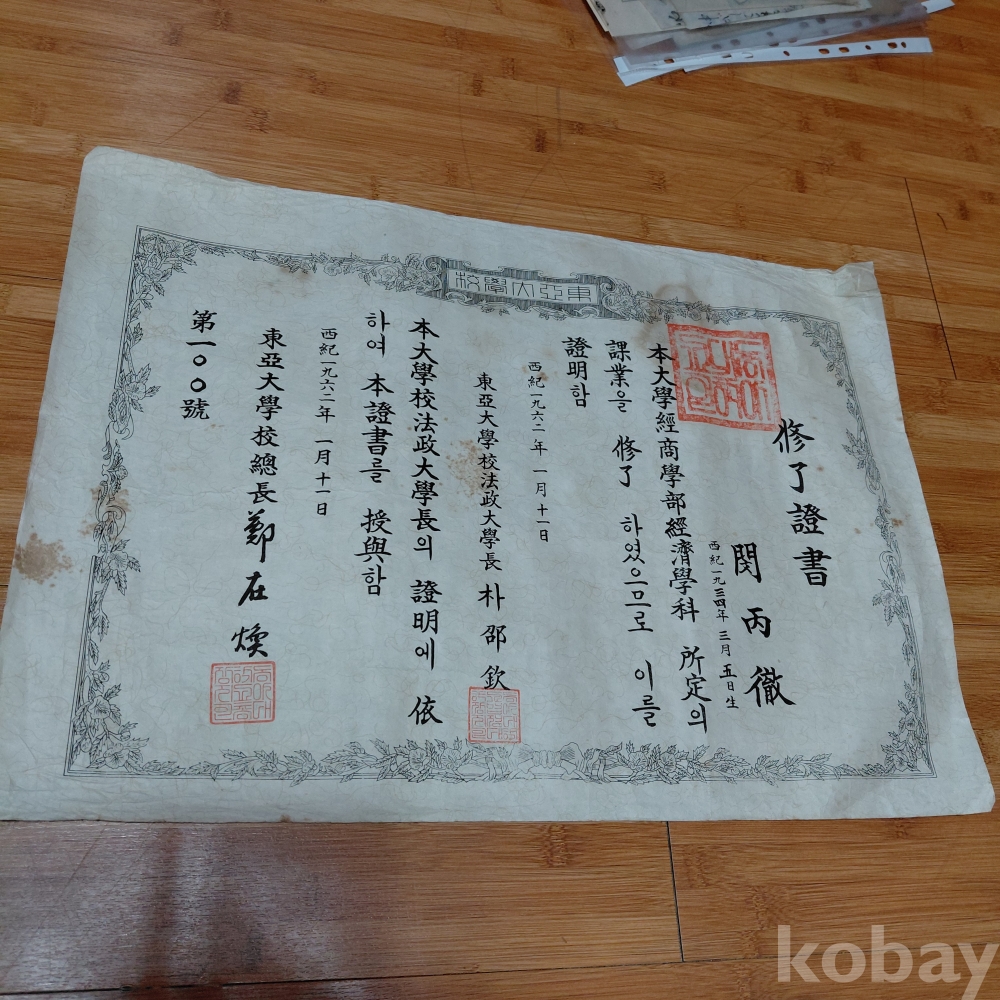 東亞大學校
修了證書
閔丙徹
西紀一九三四年 三月 五日生
本大學經商學部經濟學科 所定의
課業을 修了 하였으므로 이를
證明함
西紀一九六二年 一月 十一日
東亞大學校法政大學長 朴邵欽
本大學校法政大學長의 證明에 依
하여 本證書를 授與함
西紀一九六二年 一月十一日
東亞大學校總長 鄭在煥
第一〇〇號
kobay